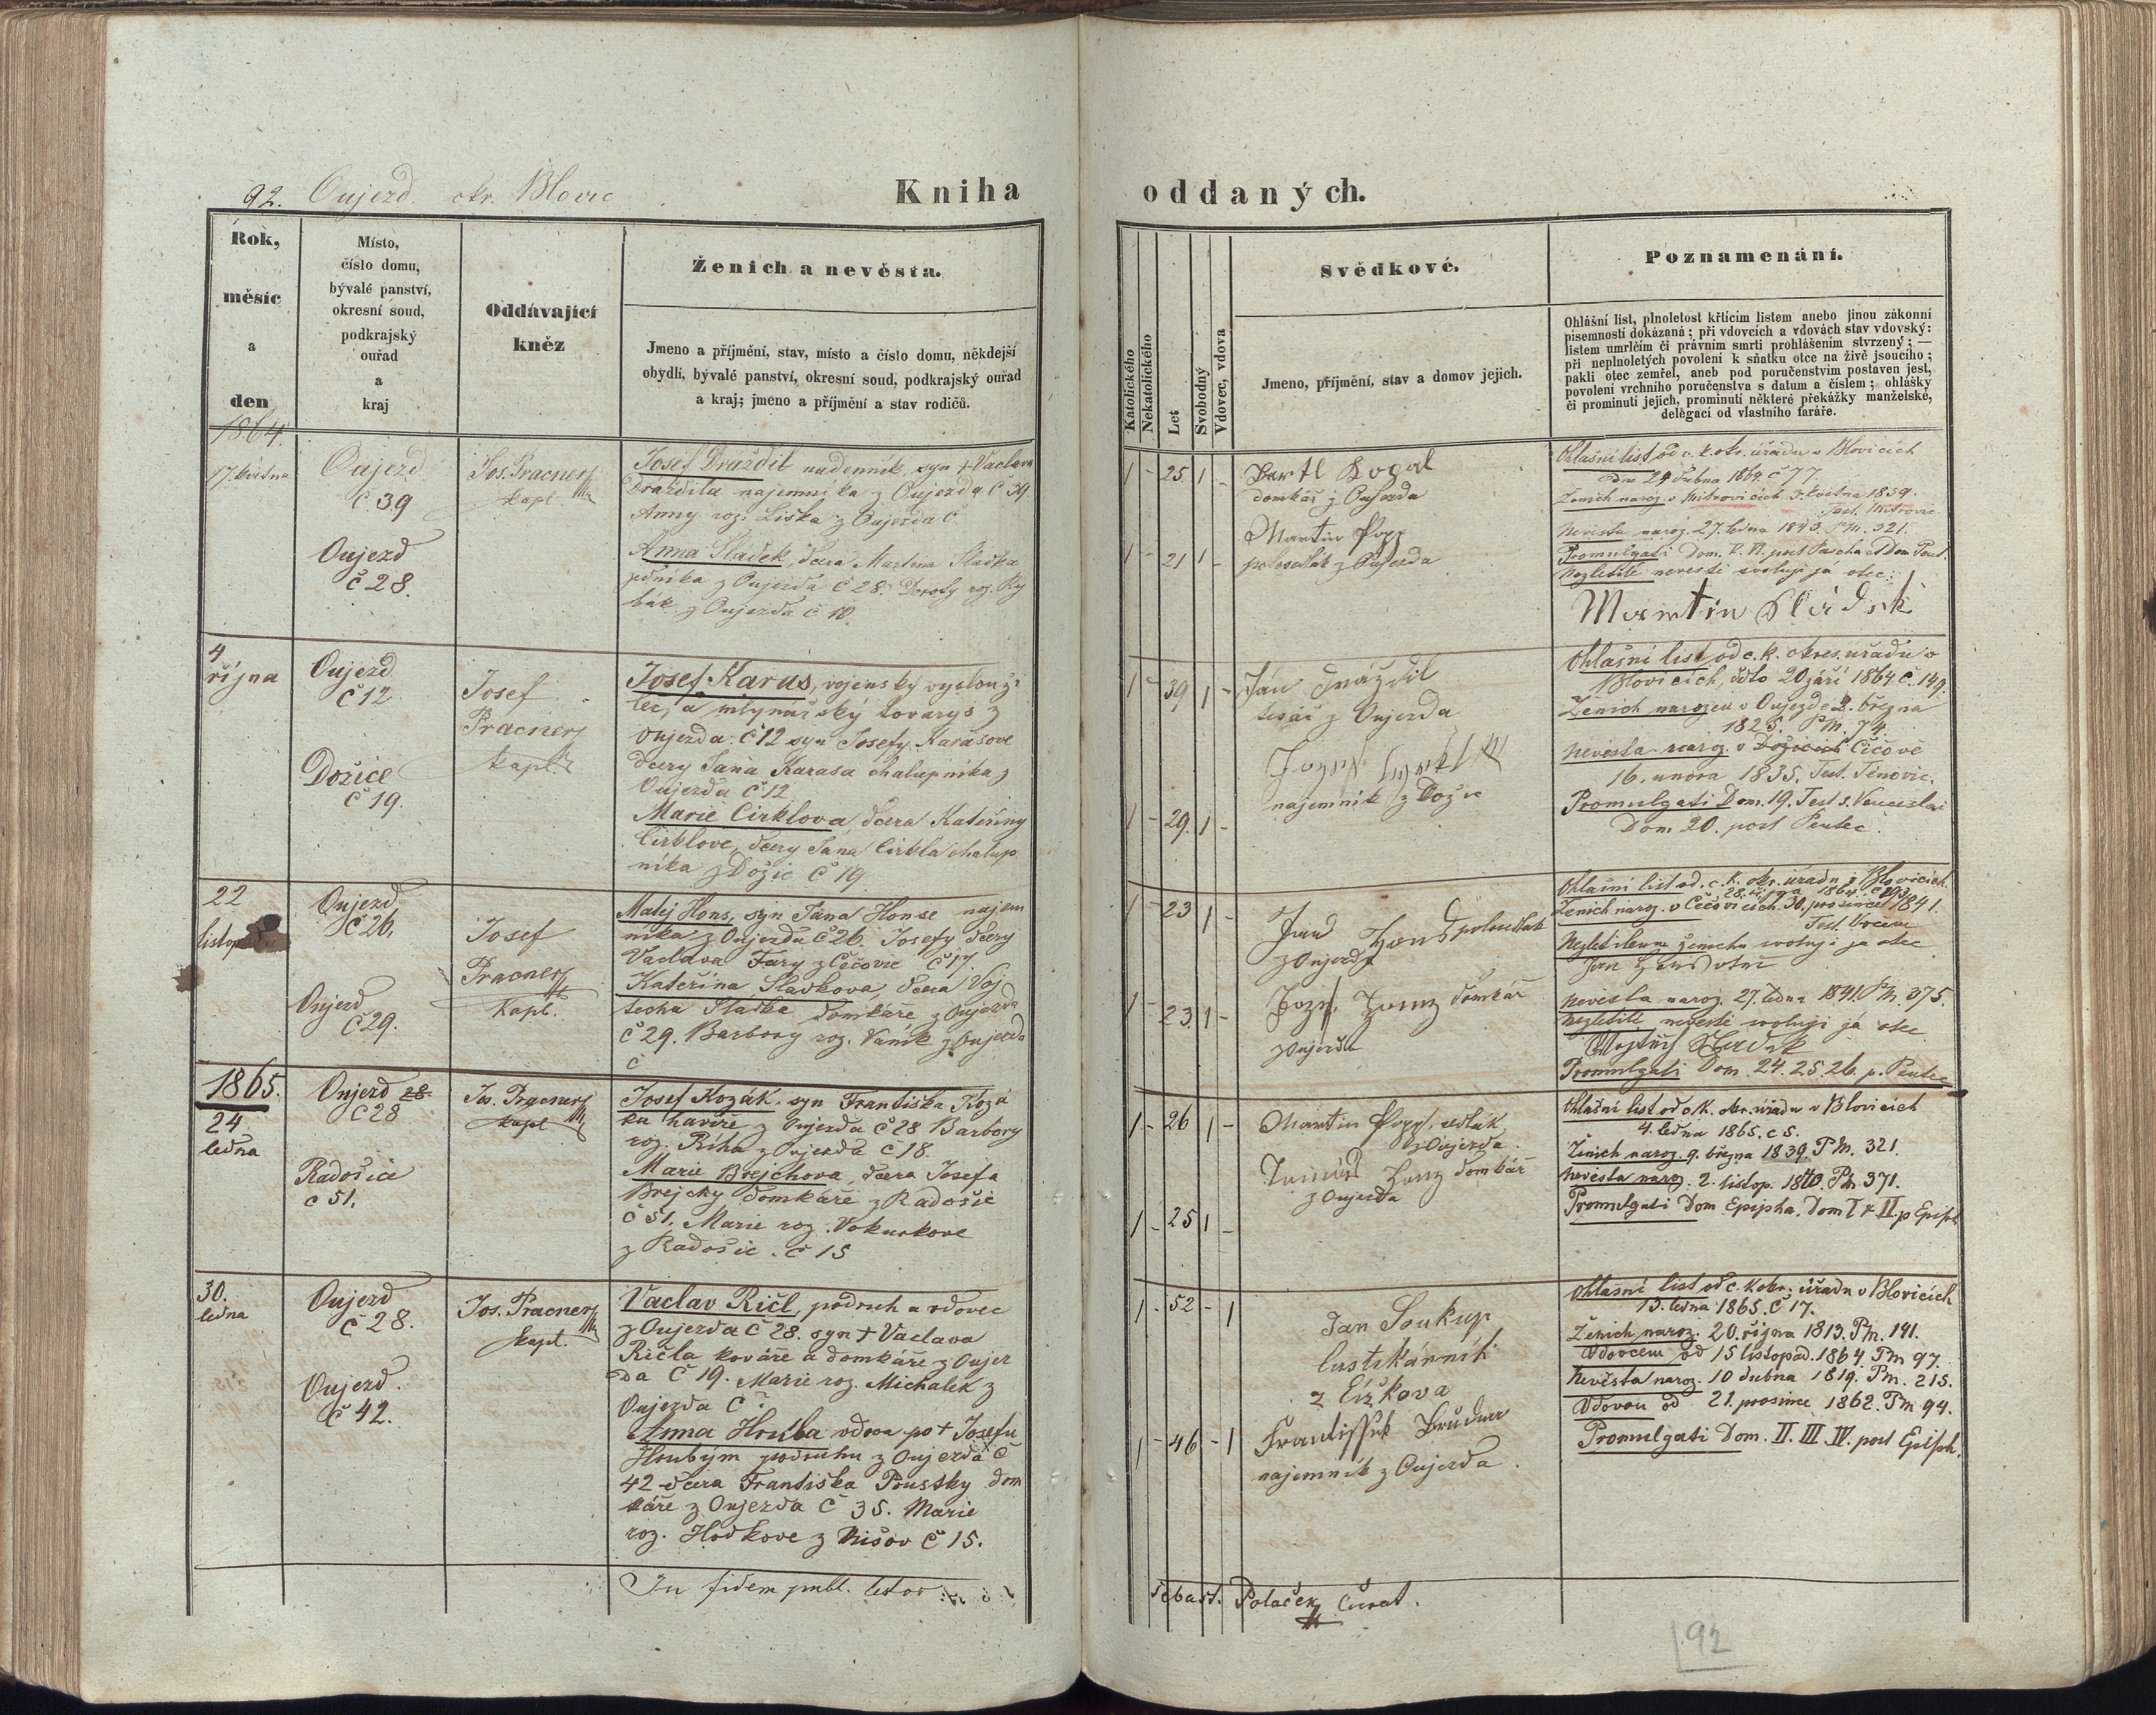 92. Oujezd okr. Blovic
Kniha
oddaných.
Rok,
měsíc
a
den
Místo,
číslo domu,
bývalé panství,
okresní soud,
podkrajský
ouřad
a
kraj
Oddávající
kněz
Ženich a nevěsta.
Jmeno a příjmění, stav, místo a číslo domu, někdejší
obydlí, bývalé panství, okresní soud, podkrajský ouřad
a kraj; jmeno a příjmění a stav rodičů.
Katolického
Nekatolického
Let
Svobodný
Vdovec, vdova
Svědkové.
Jmeno, příjmění, stav a domov jejich.
Poznamenání.
Ohlášní list, plnoletost křticím listem anebo jinou zákonní
písemností dokázaná; při vdovcích a vdovách stav vdovský:
listem umrlčím či právním smrti prohlášením stvrzený; —
při neplnoletých povolení k sňatku otce na živě jsoucího;
pakli otec zemřel, aneb pod poručenstvím postaven jest,
povolení vrchního poručenstva s datum a číslem; ohlášky
či prominutí jejich, prominutí některé překážky manželské,
delegací od vlastního faráře.
1864.
17. května
Oujezd
č. 39
Oujezd
č 28.
Jos. Pracner
kapl.
Josef Draždil nadenník, syn † Vaclava
Draždila najemníka z Oujezda č 39
Anny roz. Liška z Oujezda č
Anna Sladek, dcera Martina Sladka
z Oujezda č 28. Doroty roz. Ry
bák z Oujezda č 10.
1 - 25 1 -
1 - 21 1 -
domkář z Oujezda
Martin Popp
polousedlák z Oujezda
Ohlašní list od c. k. okr. úřadu v Blovicích
dne 24 dubna 1864. č 77.
Ženich naroz. v Mitrovicích 3. května 1839.
Test. Mitrovic
Nevěsta naroz. 27. ledna 1843 Pm. 321.
Promulgati Dom. V. VI. post Pascha et Dom Pent.
Nezletilé nevěstě svoluji já otec:
Martin Sládek
4
října
Oujezd
č 12
Dožice
č 19.
Josef
Pracner
kapl.
Josef Karas, vojenský vyslouži
lec, a mlynářský tovaryš z
Oujezda č 12 syn Josefy Karasove
dcery Jana Karasa chalupníka z
Oujezda č 12
Marie Cirklova, dcera Kateřiny
Cirklové, dcery Jana Cirkla chalup
níka z Dožic č 19
1 - 39 1 -
1 - 29. 1 -
Ján Drázdil
tesař z Oujezda
najemník z Dožic
Ohlašní list od c. k. okres. úřadu v
Blovicích, ddto 20 září 1864 č. 149.
Ženich narozen v Oujezdě 2. března
1825. Pm. 74.
Nevěsta naroz. v Dožicích Čičově
16. unora 1835. Test. Tinovic.
Promulgati Dom. 19. Fest s. Venceslai
Dom 20. post Pentec.
22
listopadu
Oujezd
č 26,
Oujezd
č 29.
Josef
Pracner
kapl.
Matěj Hons, syn Jana Honse najem
níka z Oujezda č 26. Josefy dcery
Vaclava Fary z Čečovic č 17
Kateřina Sladkova, dcera Voj
techa Sladka domkáře z Oujezda
č 29. Barbory roz. Vaník z Oujezda
č
1 - 23 1 -
1 - 23. 1 -
Jan Hons polousedlak
z Oujezda
domkář
z Oujezda
Ohlašní list od. c. k. okr. úřadu v Blovicích
28. října 1864. č 193
Ženich naroz. v Čečovicích 30. prosince 1841.
Test. Vrčeň
Nezletilemu ženichu svoluji já otec
Nevěsta naroz. 27. ledna 1841. Pm. 375.
Nezletilé nevěstě svoluji já otec
Promulgati Dom. 24. 25. 26. p. Pentec
1865.
24
ledna
Oujezd 28.
č 28
Radošice
č 51.
Jos. Pracner
kapl.
Josef Kozák, syn Františka Kozá
ka havíře z Oujezda č 28 Barbory
roz. Říha z Oujezda č 18.
Marie Brejchova, dcera Josefa
Brejchy domkáře z Radošic
č 51. Marie roz. Vokurkove
z Radošic. č 15
1 - 26 1 -
1 - 25 1 -
Martin Popp, sedlák
z Oujezda.
domkář
z Oujezda
Ohlašní list od c. k. okr. úřadu v Blovicích
4. ledna 1865. č 5.
Ženich naroz. 9. března 1839. Pm. 321.
Nevěsta naroz. 2. listop. 1840. Pm 371.
Promulgati Dom Epipha. Dom I & II. p Epiph
30.
ledna
Oujezd
č 28.
Oujezd.
č 42.
Jos. Pracner
kapl.
Vaclav Ričl, podruh a vdovec
z Oujezda č 28. syn † Vaclava
Ričla kováře a domkáře z Oujez
da č 19. Marie roz. Michalek z
Oujezda č ?
Anna Hrubá vdova po † Josefu
Hrubým podruhu z Oujezda č
42 dcera Františka Poustky dom
káře z Oujezda č 35. Marie
roz. Hodkove z Mišov č 15.
1 - 52 - 1
1 - 46 - 1
Jan Soukup
z Čížkova
najemník z Oujezda.
Ohlašní list od c. k. okr. úřadu v Blovicích
13. ledna 1865. č 17.
Ženich naroz. 20. října 1813. Pm. 141.
Vdovcem od 15 listopad. 1864. Pm 97.
Nevěsta naroz. 10 dubna 1819. Pm. 215.
Vdovou od 21. prosince 1862. Pm 94.
Promulgati Dom. II. III. IV. post Epiph.
In fidem publ. testor
Šebast. Polaček Curat.
92